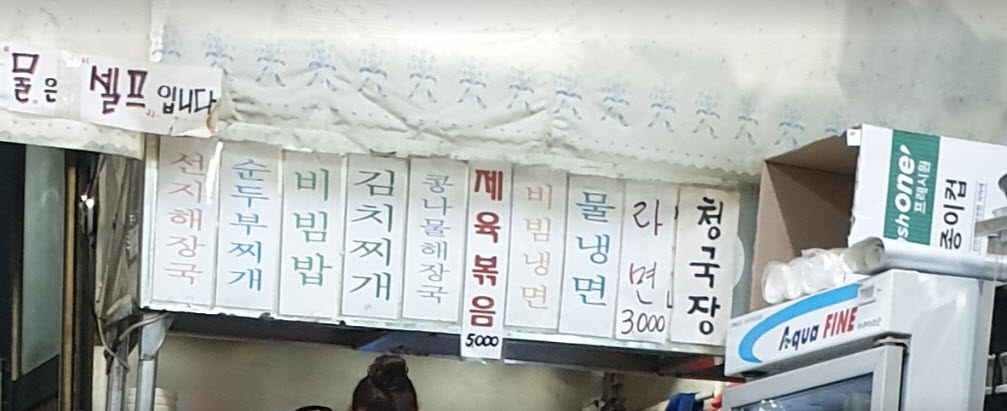 "물"은 "셀프"입니다
선지해장국
순두부찌개
비빔밥
김치찌개
콩나물해장국
제육볶음
5000
비빔냉면
물냉면
라면
3000
청국장
프레시원
종이컵
Aqua FINE